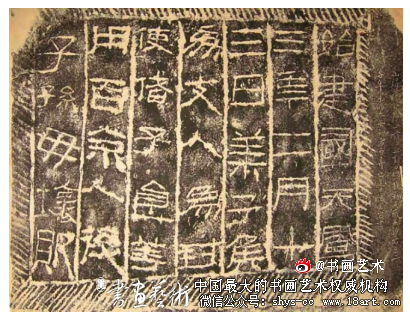 始建國天鳳
三年二月十
三日萊子侯
為支人為封
使偖子食等
用百余人後
子孫毋壞敗
@书画艺术
書画藝術 中国最大的书画艺术权威机构
微信公众号：shys-cc www.18art.com